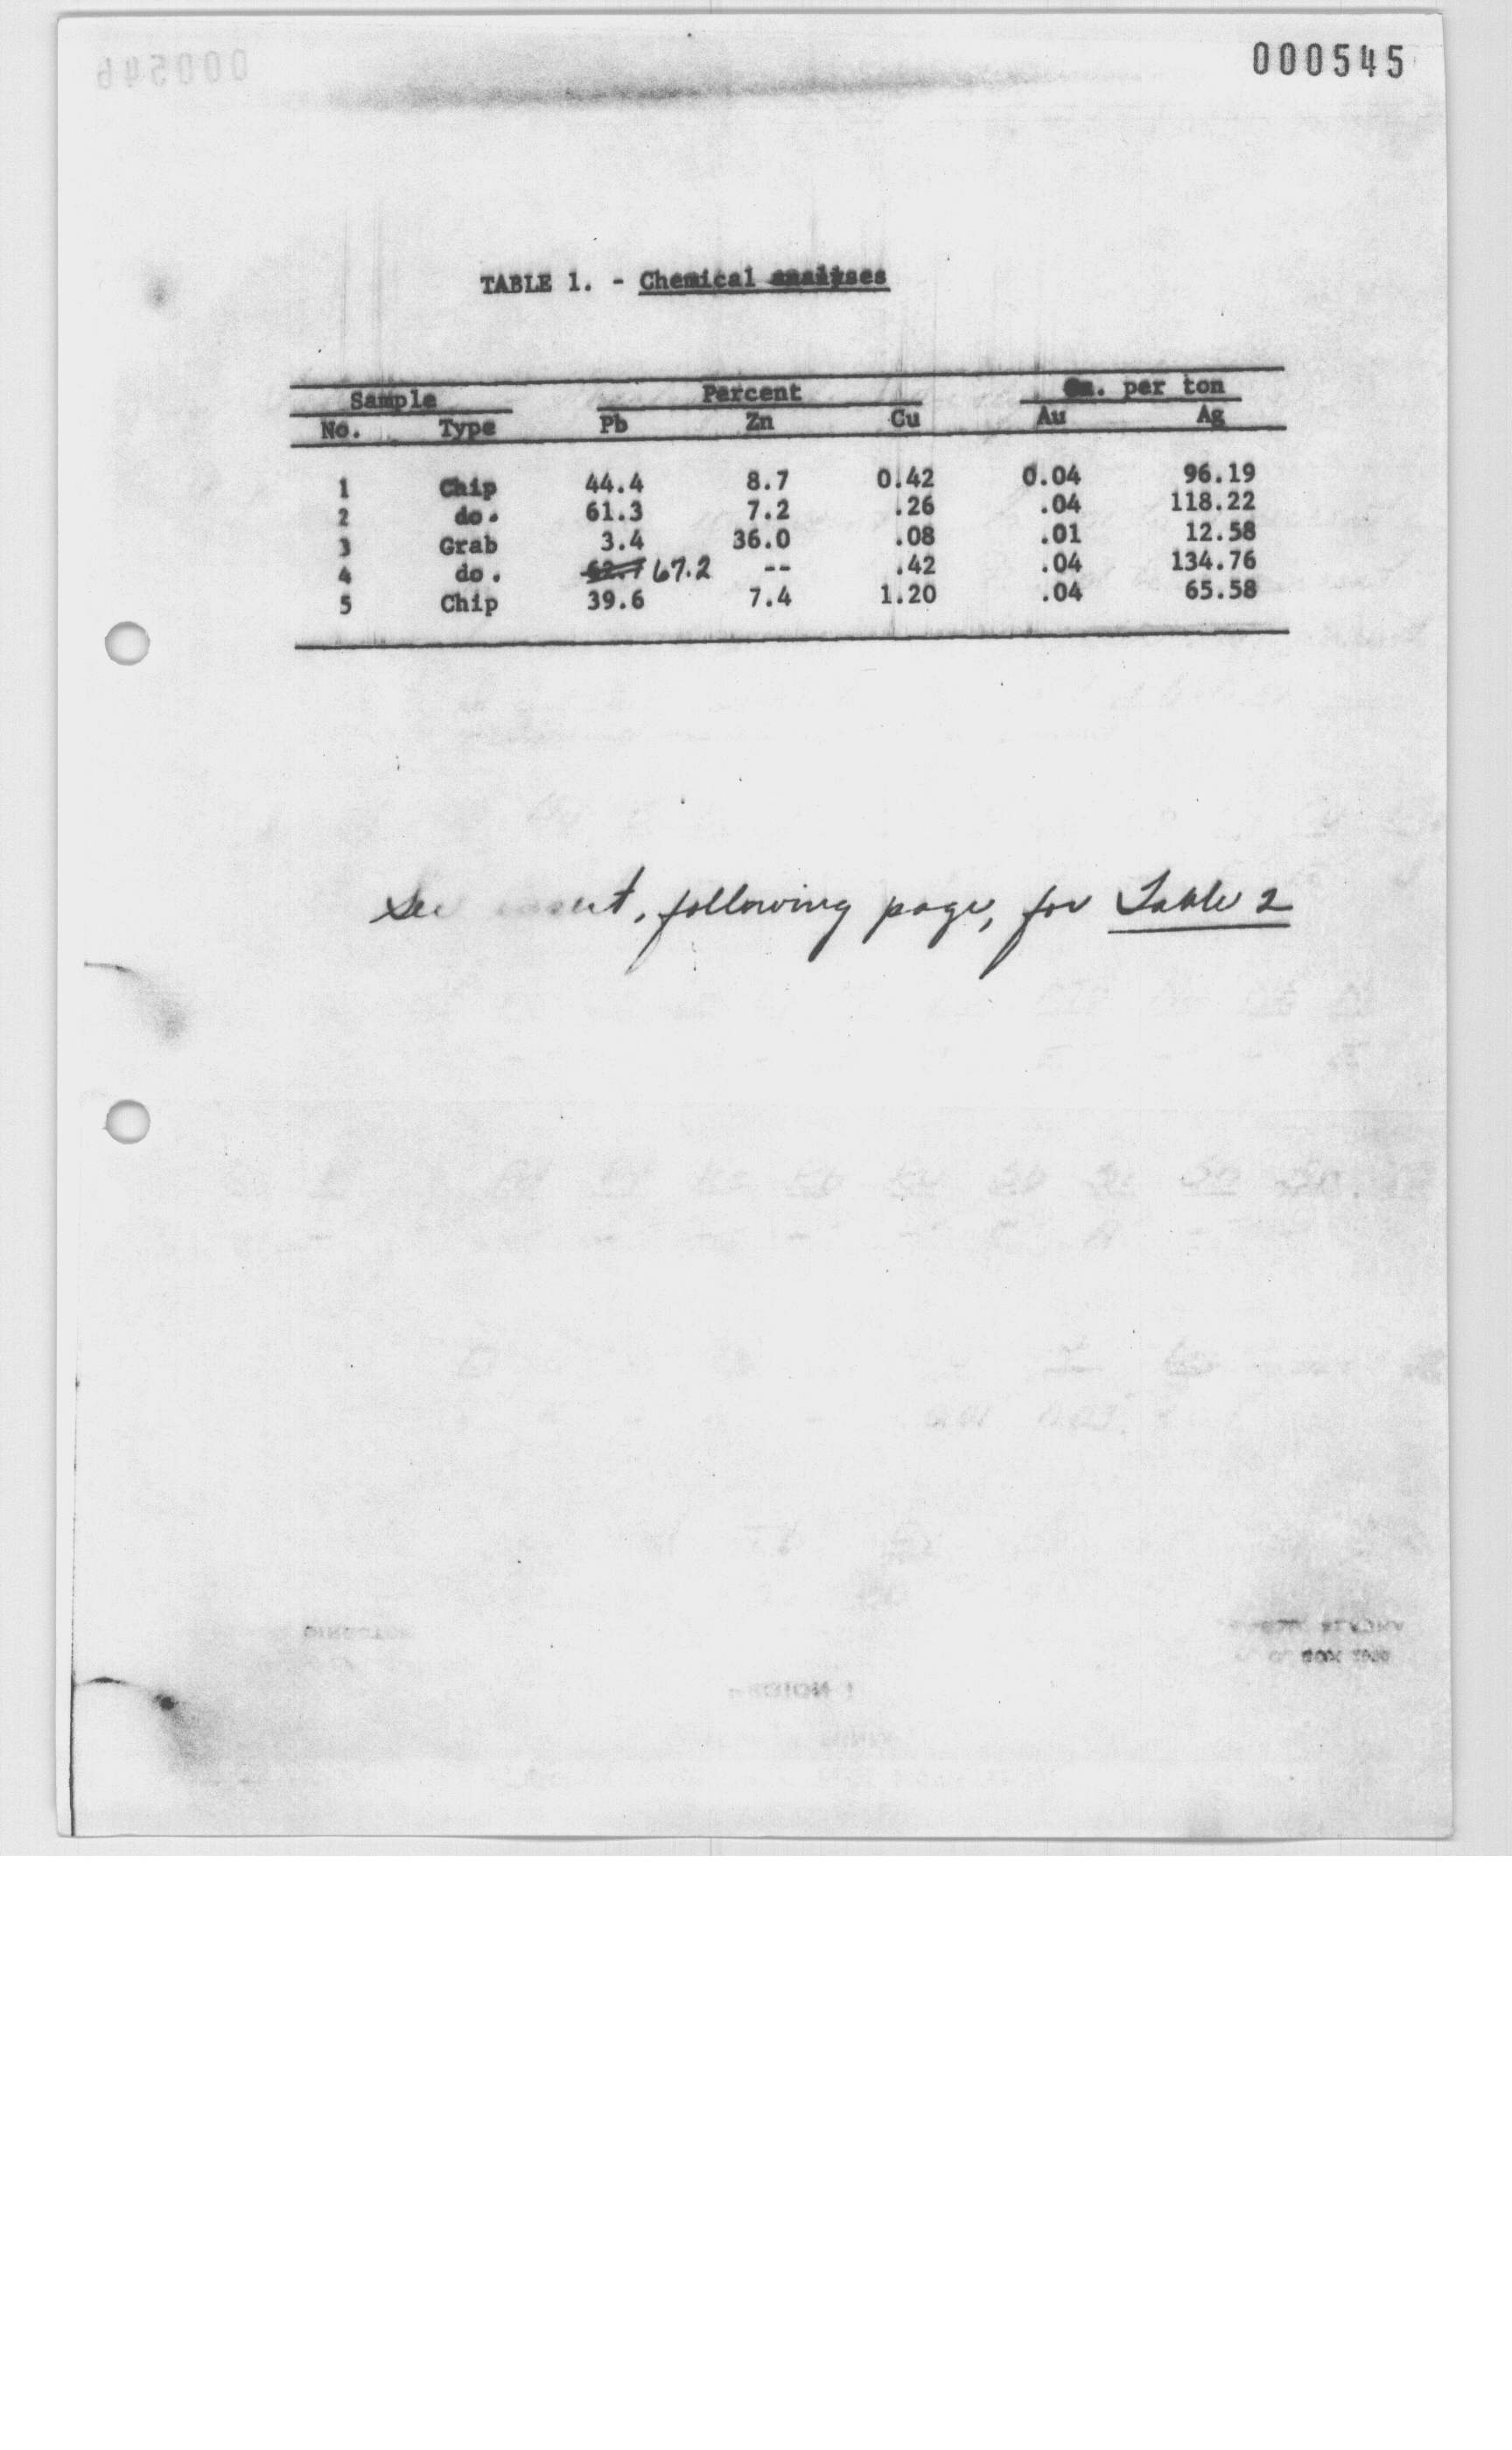 000545
TABLE 1. - Chemical analyses
Sample Percent Oz. per ton
No. Type Pb Zn Cu Au Ag
1 Chip 44.4 8.7 0.42 0.04 96.19
2 do. 61.3 7.2 .26 .04 118.22
3 Grab 3.4 36.0 .08 .01 12.58
4 do. 67.2 -- .42 .04 134.76
5 Chip 39.6 7.4 1.20 .04 65.58
See insert, following page, for Table 2